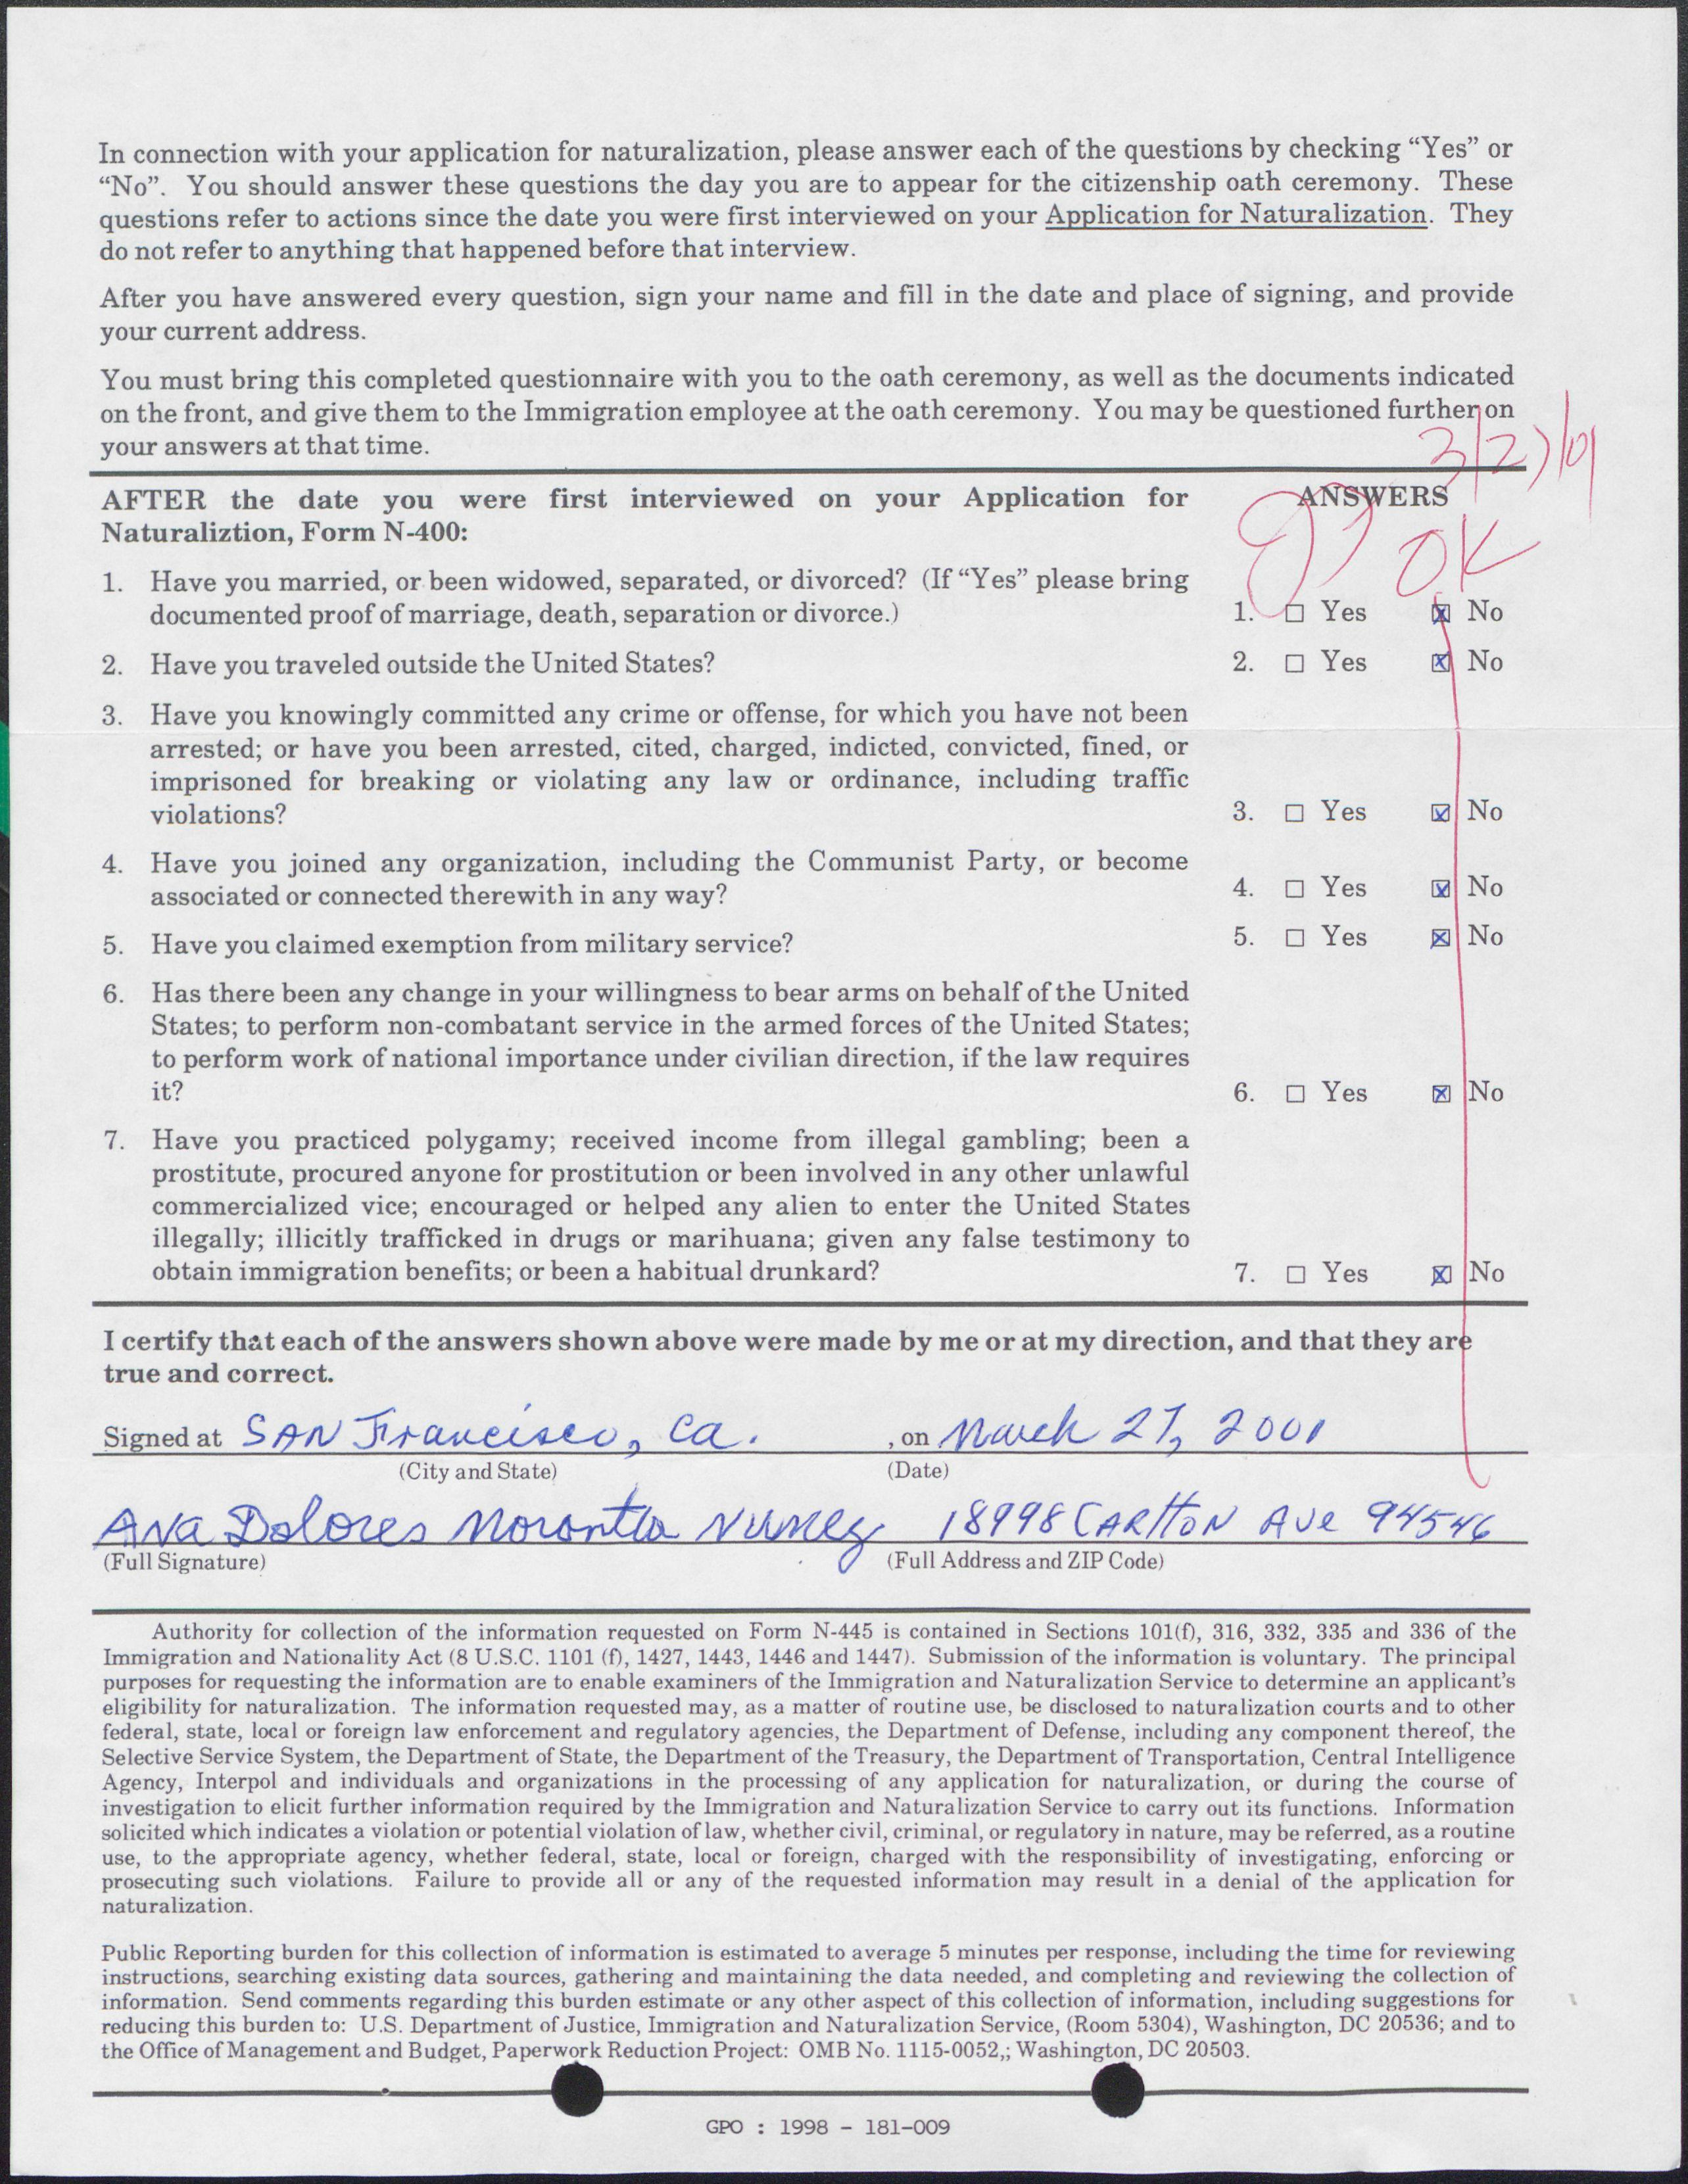 In connection with your application for naturalization, please answer each of the questions by checking “Yes” or
“No”. You should answer these questions the day you are to appear for the citizenship oath ceremony. These
questions refer to actions since the date you were first interviewed on your Application for Naturalization. They
do not refer to anything that happened before that interview.
After you have answered every question, sign your name and fill in the date and place of signing, and provide
your current address.
You must bring this completed questionnaire with you to the oath ceremony, as well as the documents indicated
on the front, and give them to the Immigration employee at the oath ceremony. You may be questioned further on
your answers at that time.
3/27/01
AFTER the date you were first interviewed on your Application for
Naturaliztion, Form N-400:
ANSWERS
OK
1. Have you married, or been widowed, separated, or divorced? (If “Yes” please bring
documented proof of marriage, death, separation or divorce.)
1. ☐ Yes ☒ No
2. Have you traveled outside the United States?
2. ☐ Yes ☒ No
3. Have you knowingly committed any crime or offense, for which you have not been
arrested; or have you been arrested, cited, charged, indicted, convicted, fined, or
imprisoned for breaking or violating any law or ordinance, including traffic
violations?
3. ☐ Yes ☒ No
4. Have you joined any organization, including the Communist Party, or become
associated or connected therewith in any way?
4. ☐ Yes ☒ No
5. Have you claimed exemption from military service?
5. ☐ Yes ☒ No
6. Has there been any change in your willingness to bear arms on behalf of the United
States; to perform non-combatant service in the armed forces of the United States;
to perform work of national importance under civilian direction, if the law requires
it?
6. ☐ Yes ☒ No
7. Have you practiced polygamy; received income from illegal gambling; been a
prostitute, procured anyone for prostitution or been involved in any other unlawful
commercialized vice; encouraged or helped any alien to enter the United States
illegally; illicitly trafficked in drugs or marihuana; given any false testimony to
obtain immigration benefits; or been a habitual drunkard?
7. ☐ Yes ☒ No
I certify that each of the answers shown above were made by me or at my direction, and that they are
true and correct.
Signed at SAN Francisco, Ca. , on March 27, 2001
(City and State) (Date)
Ana Dolores Morontla Nunez 18998 CARLTON AVe 94546
(Full Signature) (Full Address and ZIP Code)
Authority for collection of the information requested on Form N-445 is contained in Sections 101(f), 316, 332, 335 and 336 of the
Immigration and Nationality Act (8 U.S.C. 1101 (f), 1427, 1443, 1446 and 1447). Submission of the information is voluntary. The principal
purposes for requesting the information are to enable examiners of the Immigration and Naturalization Service to determine an applicant’s
eligibility for naturalization. The information requested may, as a matter of routine use, be disclosed to naturalization courts and to other
federal, state, local or foreign law enforcement and regulatory agencies, the Department of Defense, including any component thereof, the
Selective Service System, the Department of State, the Department of the Treasury, the Department of Transportation, Central Intelligence
Agency, Interpol and individuals and organizations in the processing of any application for naturalization, or during the course of
investigation to elicit further information required by the Immigration and Naturalization Service to carry out its functions. Information
solicited which indicates a violation or potential violation of law, whether civil, criminal, or regulatory in nature, may be referred, as a routine
use, to the appropriate agency, whether federal, state, local or foreign, charged with the responsibility of investigating, enforcing or
prosecuting such violations. Failure to provide all or any of the requested information may result in a denial of the application for
naturalization.
Public Reporting burden for this collection of information is estimated to average 5 minutes per response, including the time for reviewing
instructions, searching existing data sources, gathering and maintaining the data needed, and completing and reviewing the collection of
information. Send comments regarding this burden estimate or any other aspect of this collection of information, including suggestions for
reducing this burden to: U.S. Department of Justice, Immigration and Naturalization Service, (Room 5304), Washington, DC 20536; and to
the Office of Management and Budget, Paperwork Reduction Project: OMB No. 1115-0052,; Washington, DC 20503.
GPO : 1998 - 181-009